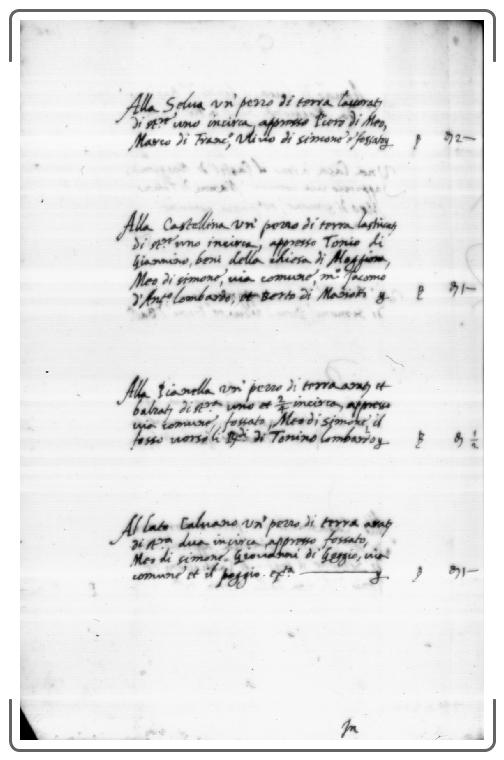 Alla Selva un' pezzo di terra lavorat.
di st.ro uno incirca, appresso Piero di Meo,
Marco di Franc.o, Ulivo di simone e' fossato p 2 —
Alla Castellina un' pezzo di terra
di st.ro uno incirca, appresso Tonio di
Giannino, beni della chiesa di
Meo di simone, via comune, m.o Jacomo
d'Ant.o lombardo, et Berto di Mariotto p 1 —
Alla Pianella un' pezzo di terra arat. et
balzat. di st.ra uno et incirca, appresso
via comune, fossato, Meo di simone, il
fosso verso li di Tonino lombardo p 1/2
Al lato Calvano un' pezzo di terra arat.
di st.ra dua incirca appresso fossato,
Meo di simone, Giovanni di Geggio, via
comune et il poggio p 1 —